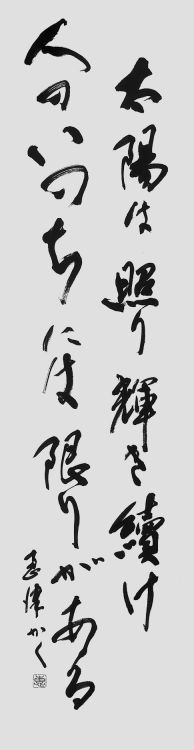 太陽は照り輝き續け
人のいのちには限りがある
かく